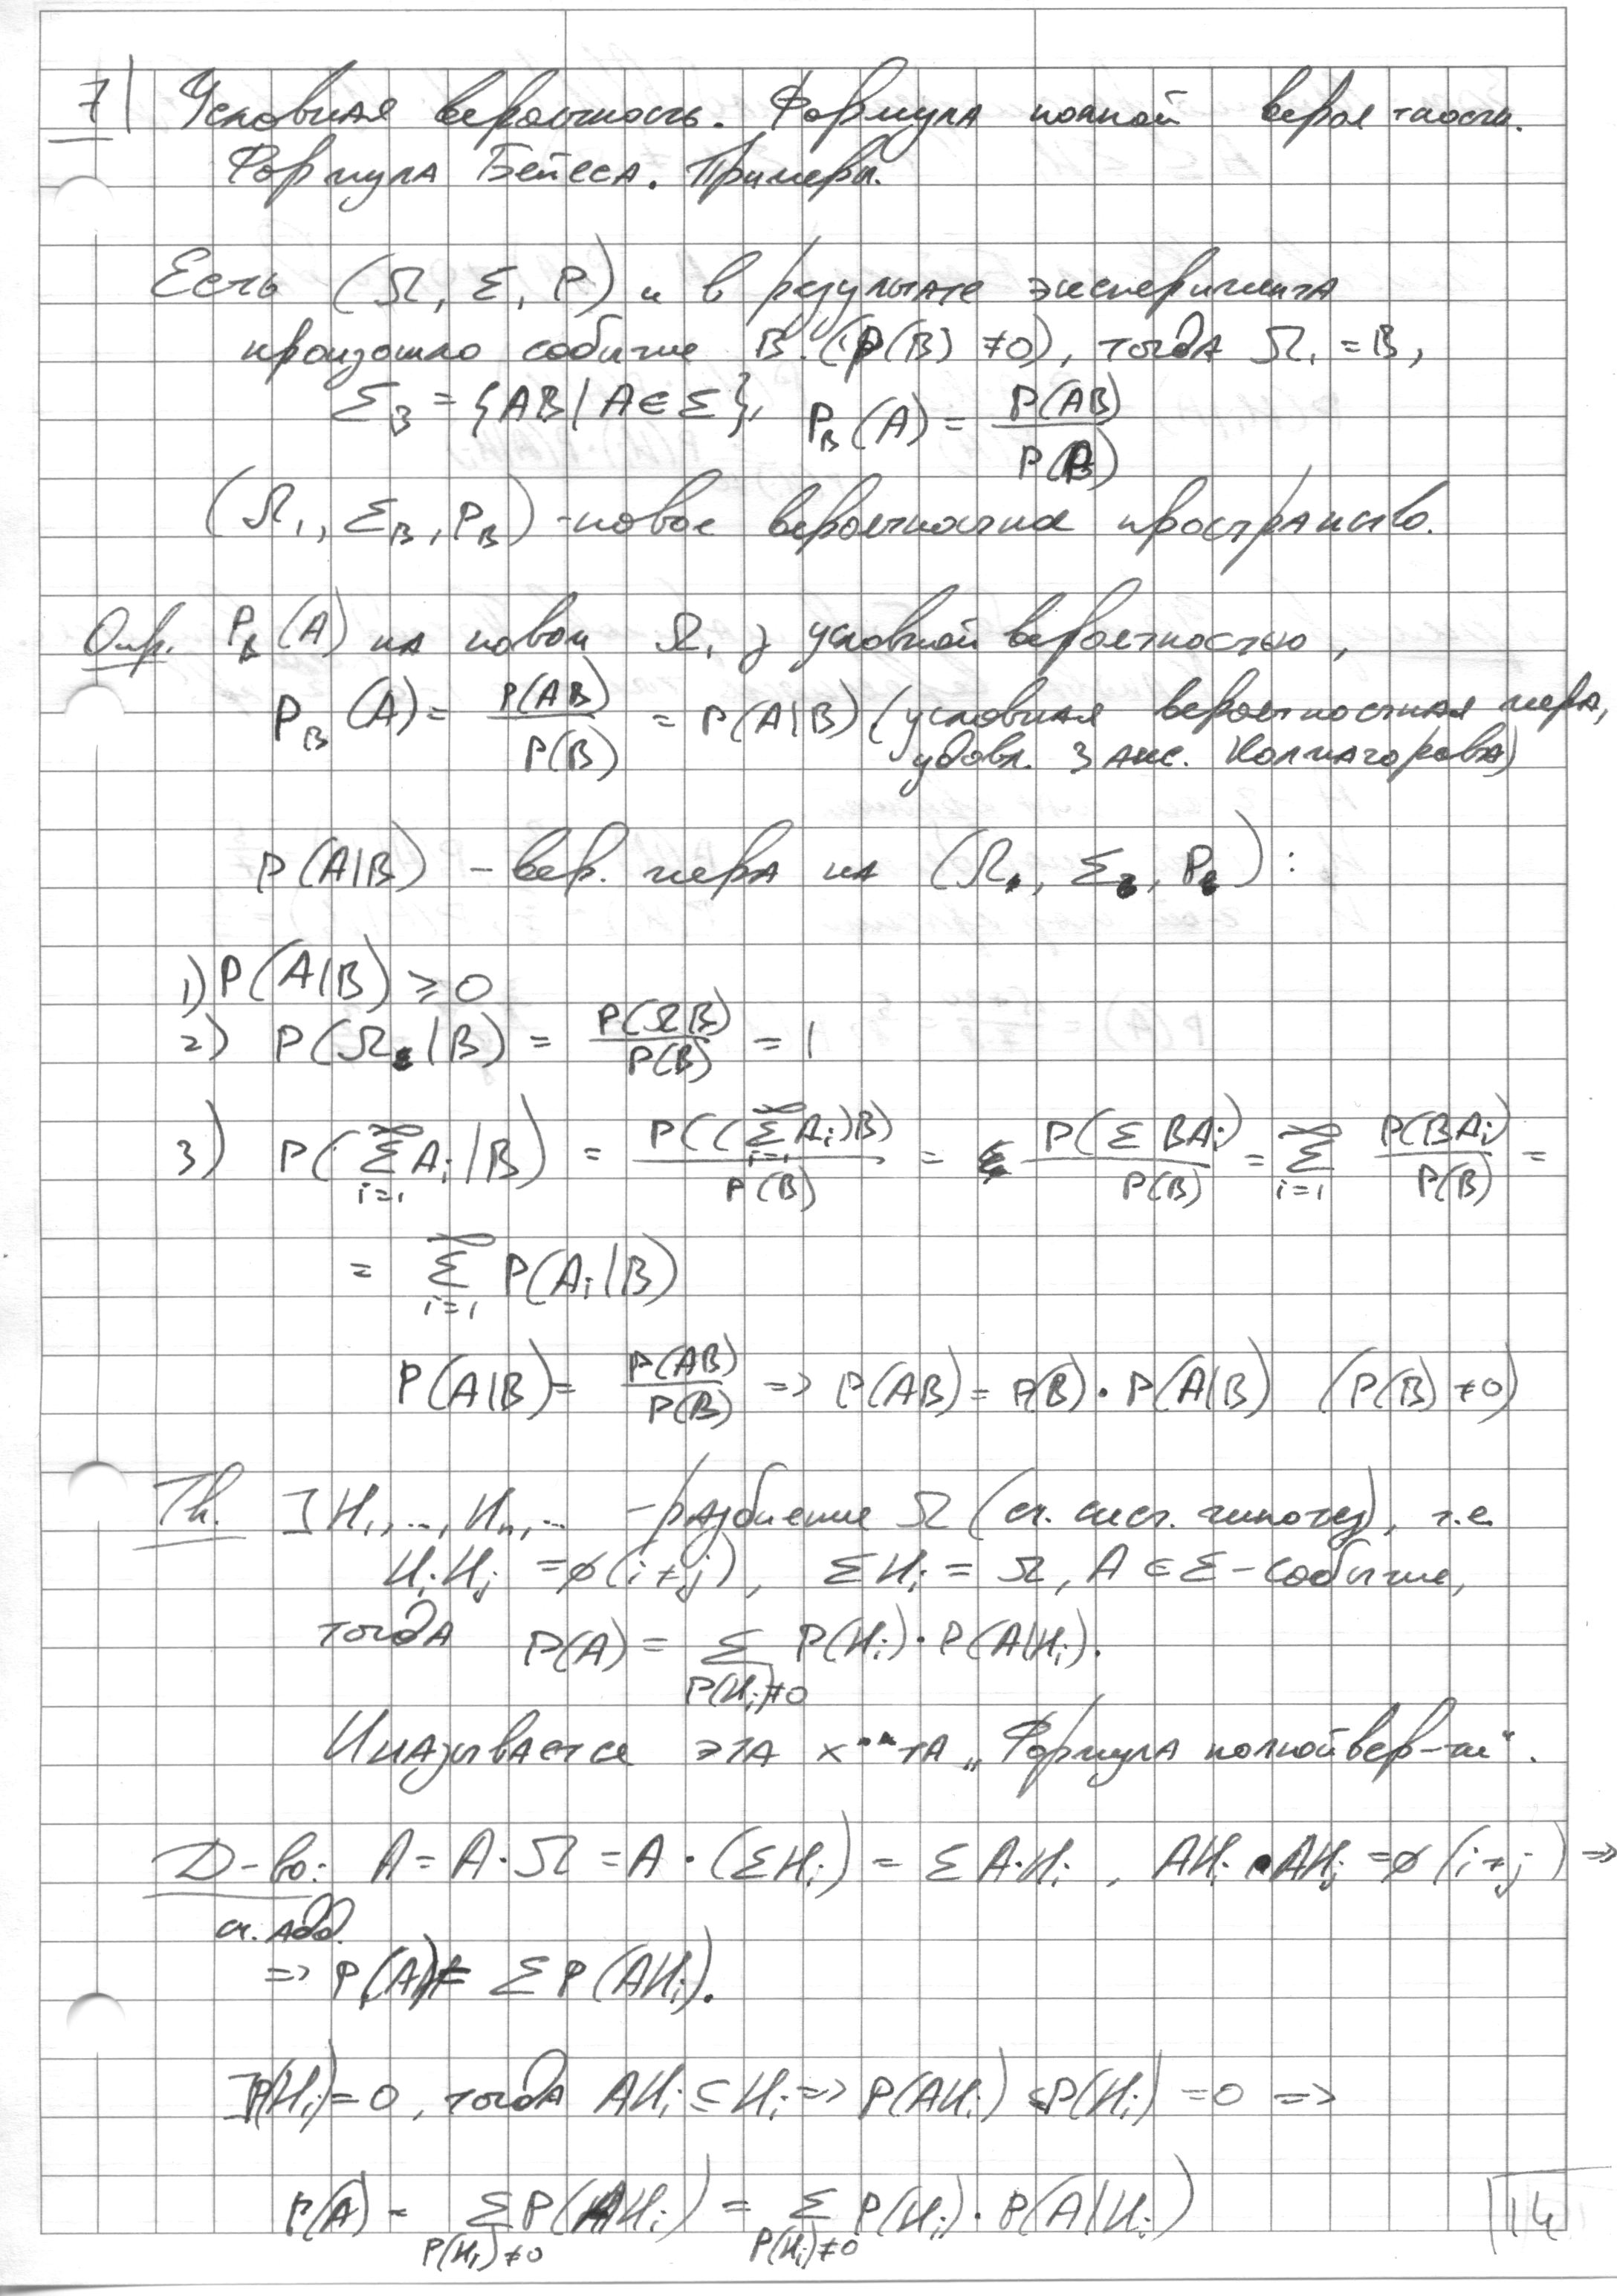 7| Условная вероятность. Формула полной вероятности.
Формула Бейеса. Примеры.
Есть (Ω, Σ, P) и в результате эксперимента
произошло событие B. (P(B) ≠0), тогда Ω₁ = B,
Σ_B = {AB | A ∈ Σ}, P_B(A) = P(AB)/P(B)
(Ω₁, Σ_B, P_B) - новое вероятностное пространство.
Опр. P_B(A) на новом Ω₁ з условной вероятностью,
P_B(A) = P(AB)/P(B) = P(A|B) (условная вероятностная мера,
удовл. 3 акс. Колмагорова)
P(A|B) - вер. мера на (Ω, Σ, P):
1) P(A|B) ⩾ 0
2) P(Ω|B) = P(ΩB)/P(B) = 1
3) P(∑_{i=1}^∞ A_i | B) = P((∑_{i=1}^∞ A_i)B)/P(B) = P(Σ BA_i)/P(B) = ∑_{i=1}^∞ P(BA_i)/P(B) =
= ∑_{i=1}^∞ P(A_i|B)
P(A|B) = P(AB)/P(B) => P(AB) = P(B) · P(A|B) (P(B) ≠0)
Th. ]H₁,..., H_n,... - разбиение Ω (сч. сист. гипотез), т.е.
H_i H_j = ∅ (i≠j), ΣH_i = Ω, A ∈ Σ - событие,
тогда P(A) = ∑_{P(H_i)≠0} P(H_i) · P(A|H_i).
И называется эта х**та „Формула полной вер-ти".
Д-во: A = A·Ω = A · (ΣH_i) = ΣA·H_i, AH_i · AH_j = ∅ (i≠j) =>
сч. адд.
=> P(A) = ΣP(AH_i).
]P(H_i) = 0, тогда AH_i ⊆ H_i => P(AH_i) ≤ P(H_i) = 0 =>
P(A) = ∑_{P(H_i)≠0} P(AH_i) = ∑_{P(H_i)≠0} P(H_i) · P(A|H_i)
14